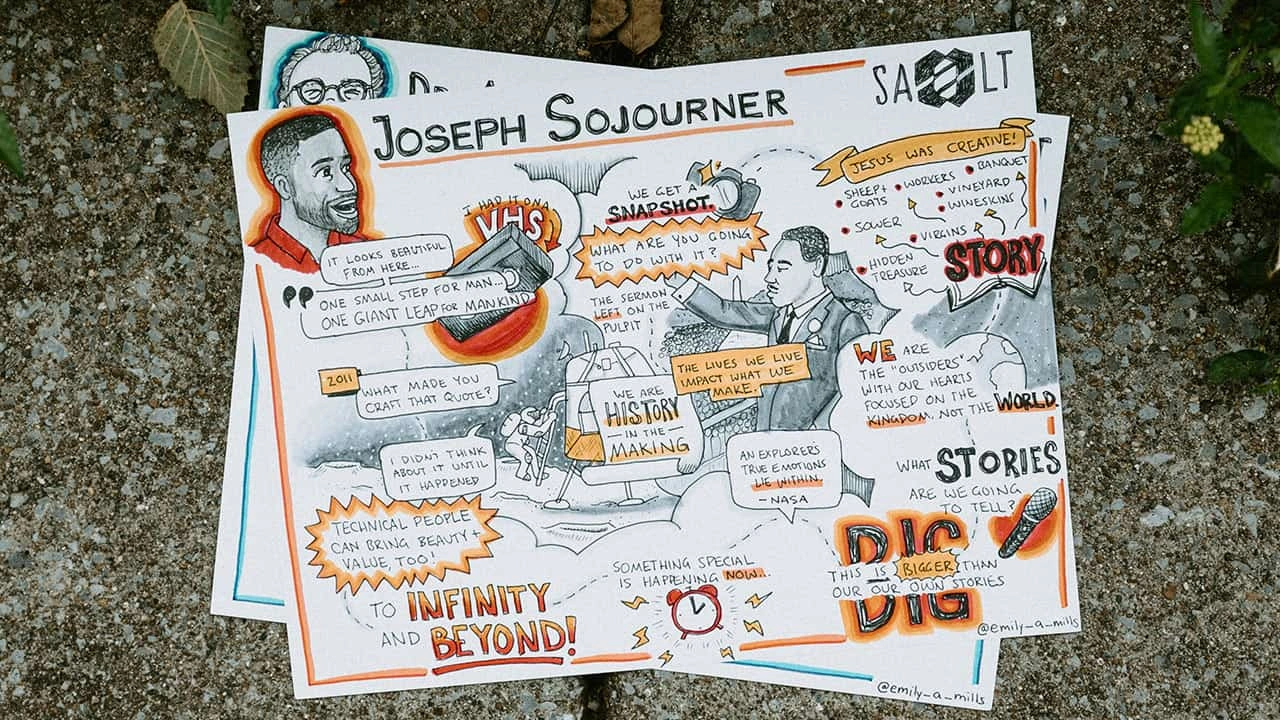 JOSEPH SOJOURNER
SA LT
IT LOOKS BEAUTIFUL
FROM HERE...
I HAD IT ON A
VHS
"ONE SMALL STEP FOR MAN...
ONE GIANT LEAP FOR MANKIND
2011
WHAT MADE YOU
CRAFT THAT QUOTE?
I DIDN'T THINK
ABOUT IT UNTIL
IT HAPPENED
TECHNICAL PEOPLE
CAN BRING BEAUTY +
VALUE, TOO!
TO INFINITY
AND BEYOND!
WE GET A
SNAPSHOT.
WHAT ARE YOU GOING
TO DO WITH IT?
THE SERMON
LEFT ON THE
PULPIT
THE LIVES WE LIVE
IMPACT WHAT WE
MAKE.
WE ARE
HISTORY
IN THE
MAKING
AN EXPLORER'S
TRUE EMOTIONS
LIE WITHIN.
- NASA
SOMETHING SPECIAL
IS HAPPENING NOW...
JESUS WAS CREATIVE!
SHEEP +
GOATS
WORKERS
BANQUET
VINEYARD
WINESKINS
SOWER
VIRGINS
HIDDEN
TREASURE
STORY
WE ARE
THE "OUTSIDERS"
WITH OUR HEARTS
FOCUSED ON THE
KINGDOM, NOT THE WORLD.
WHAT STORIES
ARE WE GOING
TO TELL?
BIG
THIS IS BIGGER THAN
OUR OUR OWN STORIES
BIG
@emily_a_mills
@emily_a_mills